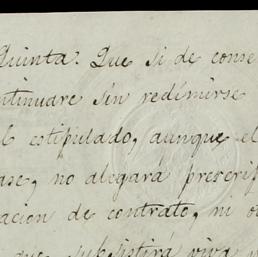 Quinta? Que si de conse
ntinuare sin redimirse
l estipulado, aunque el
ase, no alegará prescrip
acion de contrato, ni o
que subsistirá viva